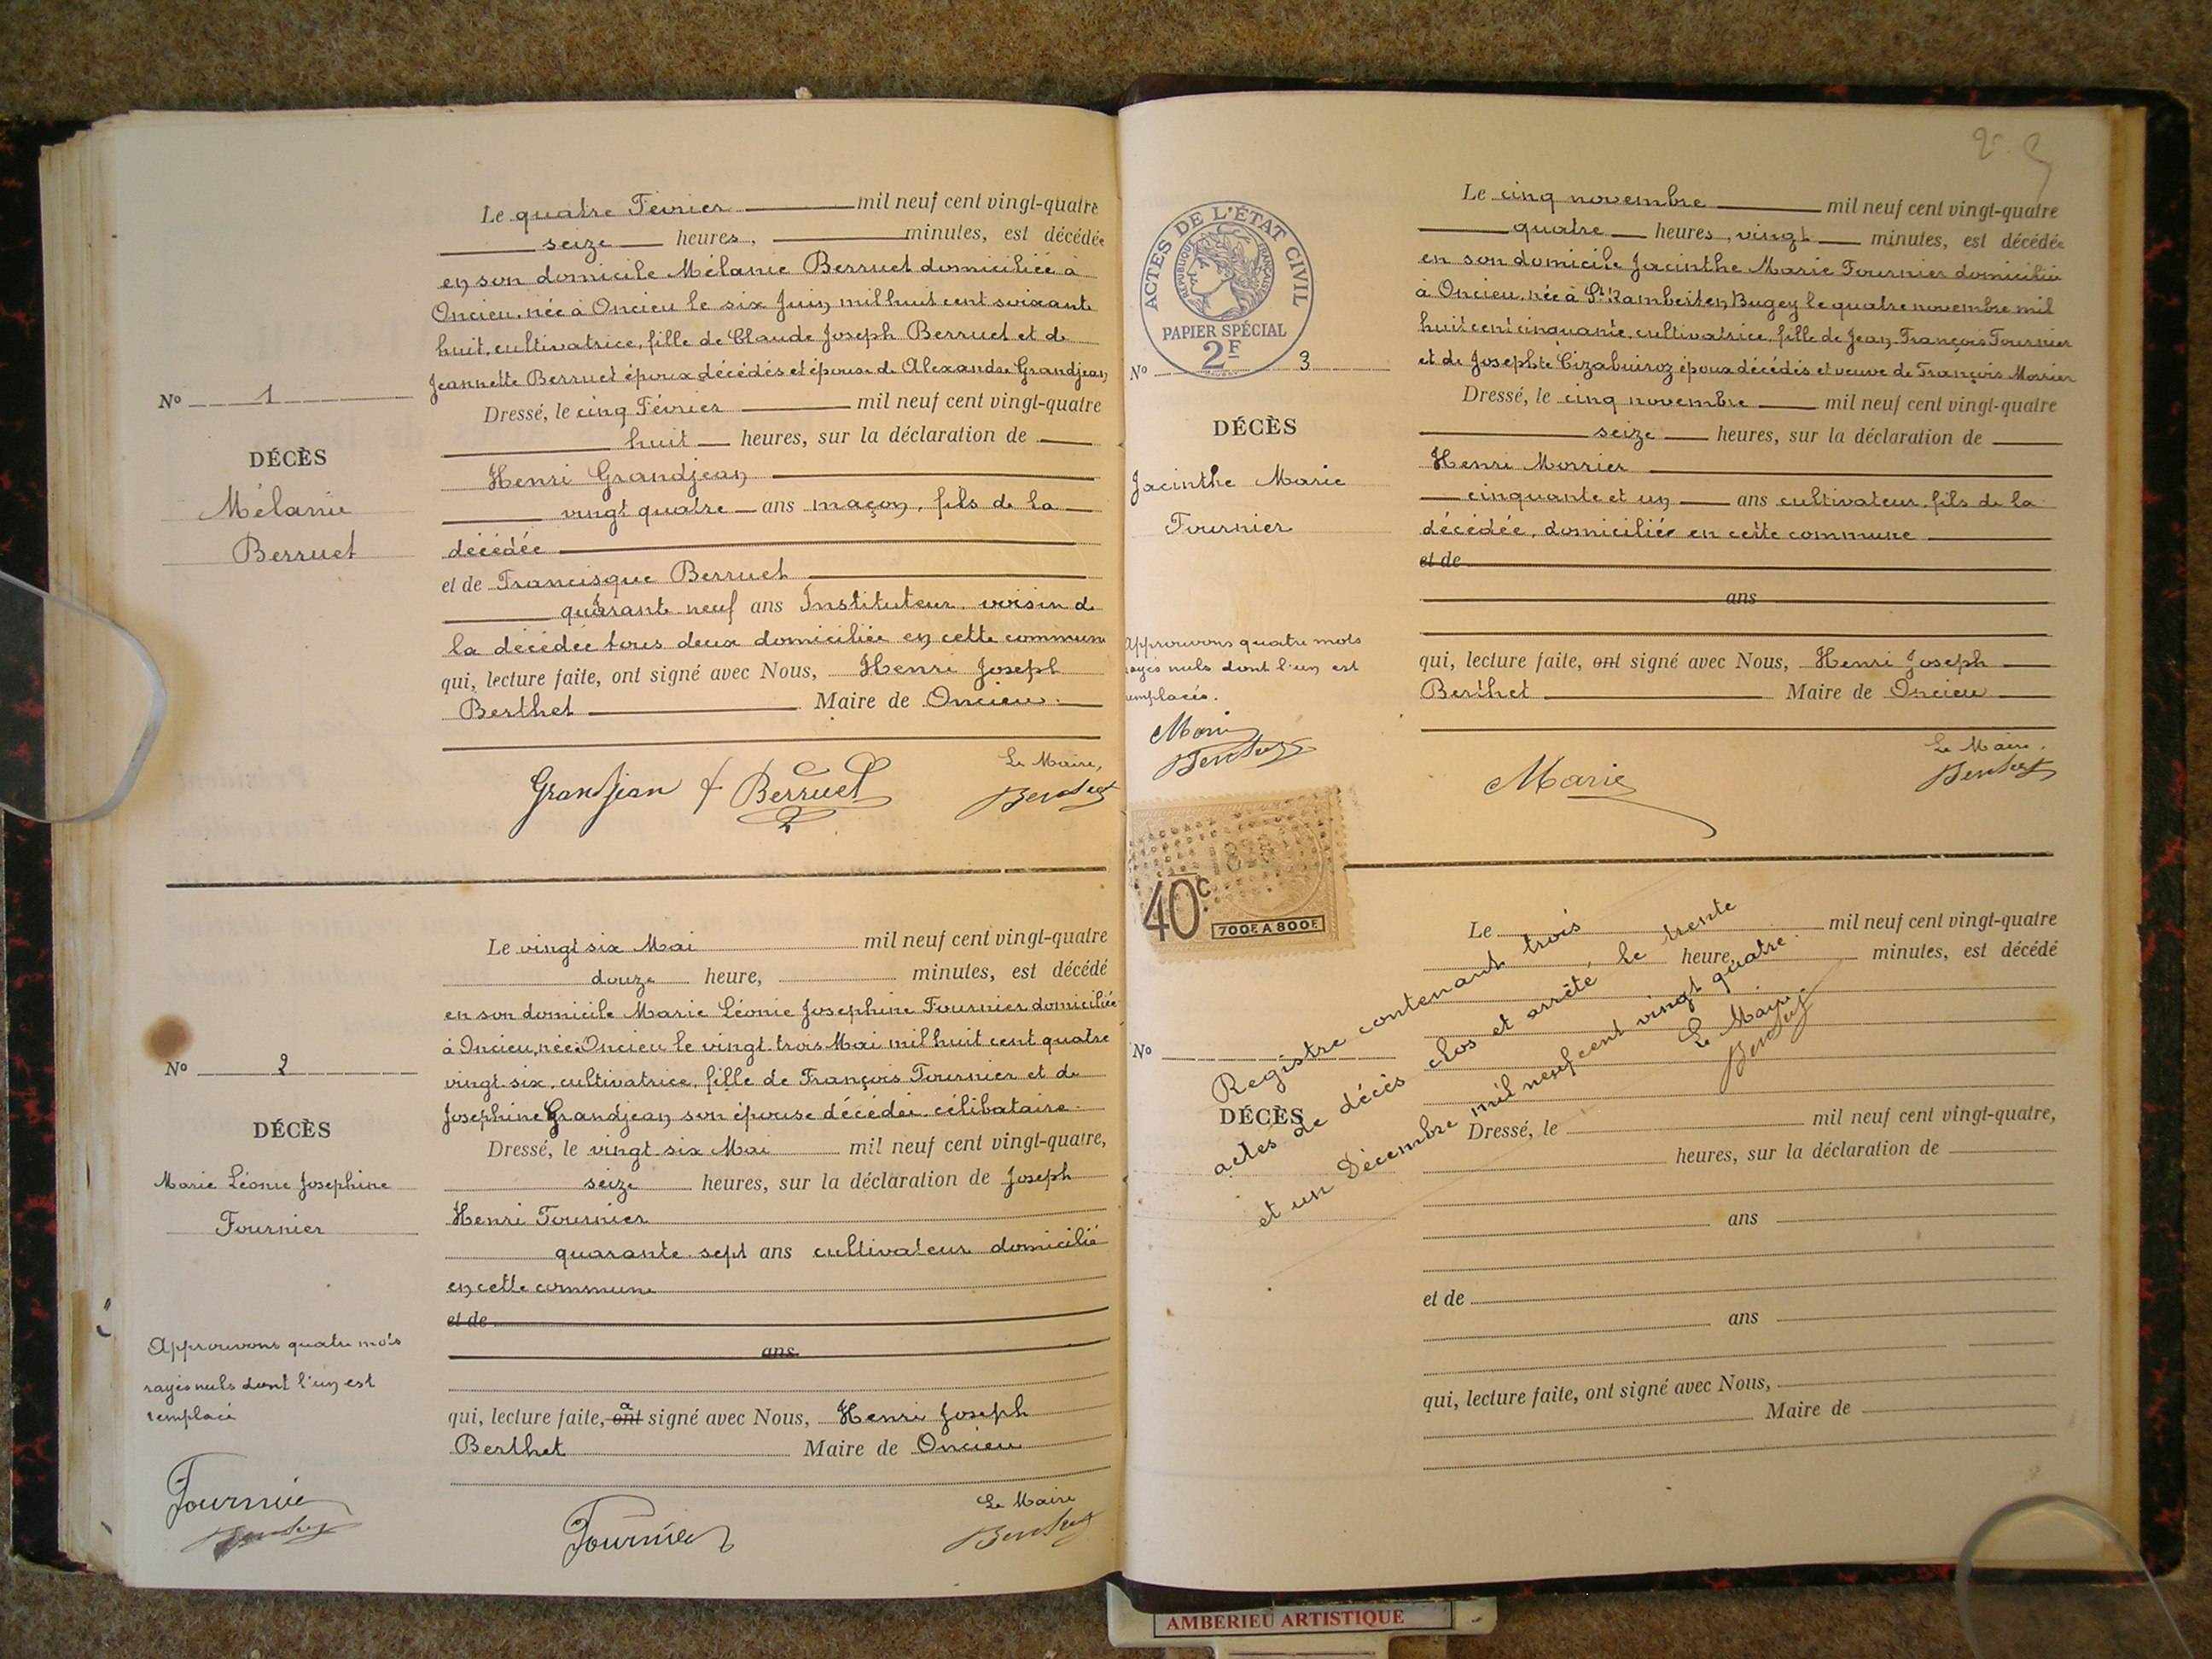 Le quatre Février mil neuf cent vingt-quatre
seize heures, minutes, est décédée
en son domicile Mélanie Berruet domiciliée à
Oncieu, née à Oncieu le six Juin mil huit cent soixante
huit, cultivatrice, fille de Claude Joseph Berruet et de
Jeannette Berruet époux décédés et épouse de Alexandre Grandjean
Nº 1
Dressé, le cinq Février mil neuf cent vingt-quatre
huit heures, sur la déclaration de
DÉCÈS
Mélanie
Berruet
Henri Grandjean
vingt quatre ans maçon, fils de la
décédée
et de Francisque Berruet
quarante neuf ans Instituteur, voisin de
la décédée tous deux domiciliés en cette commune
qui, lecture faite, ont signé avec Nous, Henri Joseph
Berthet Maire de Oncieu.
Le Maire,
Grandjean F Berruet Berthet
Le vingt six Mai mil neuf cent vingt-quatre
douze heure, minutes, est décédé
en son domicile Marie Léonie Josephine Fournier domiciliée
à Oncieu, née à Oncieu le vingt trois Mai mil huit cent quatre
vingt six, cultivatrice, fille de François Fournier et de
Josephine Grandjean son épouse décédés, célibataire.
Nº 2
DÉCÈS
Marie Léonie Josephine
Fournier
Dressé, le vingt six Mai mil neuf cent vingt-quatre,
seize heures, sur la déclaration de Joseph
Henri Fournier
quarante sept ans cultivateur domicilié
en cette commune
et de
ans
Approuvons quatre mots
rayés nuls dont l'un est
remplacé
qui, lecture faite, ont a signé avec Nous, Henri Joseph
Berthet Maire de Oncieu
Le Maire
Fournier
Berthet
Fournier
Berthet
ACTES DE L'ÉTAT CIVIL
RÉPUBLIQUE FRANÇAISE
PAPIER SPÉCIAL
2F
Nº 3
Le cinq novembre mil neuf cent vingt-quatre
quatre heures, vingt minutes, est décédée
en son domicile Jacinthe Marie Fournier domiciliée
à Oncieu, née à St Rambert en Bugey le quatre novembre mil
huit cent cinquante, cultivatrice, fille de Jean François Fournier
et de Josephte époux décédés et veuve de François
DÉCÈS
Jacinthe Marie
Fournier
Dressé, le cinq novembre mil neuf cent vingt-quatre
seize heures, sur la déclaration de
Henri
cinquante et un ans cultivateur, fils de la
décédée, domicilié en cette commune
et de
ans
Approuvons quatre mots
rayés nuls dont l'un est
remplacés.
qui, lecture faite, ont signé avec Nous, Henri Joseph
Berthet Maire de Oncieu
Le Maire.
Berthet
Berthet
40c
700F A 800F
Le mil neuf cent vingt-quatre
heure, minutes, est décédé
Nº
DÉCÈS
Registre contenant trois
actes de décès clos et arrêté, le trente
et un Décembre mil neuf cent vingt quatre.
Le Maire.
Berthet
Dressé, le mil neuf cent vingt-quatre,
heures, sur la déclaration de
ans
et de
ans
qui, lecture faite, ont signé avec Nous,
Maire de
AMBERIEU ARTISTIQUE